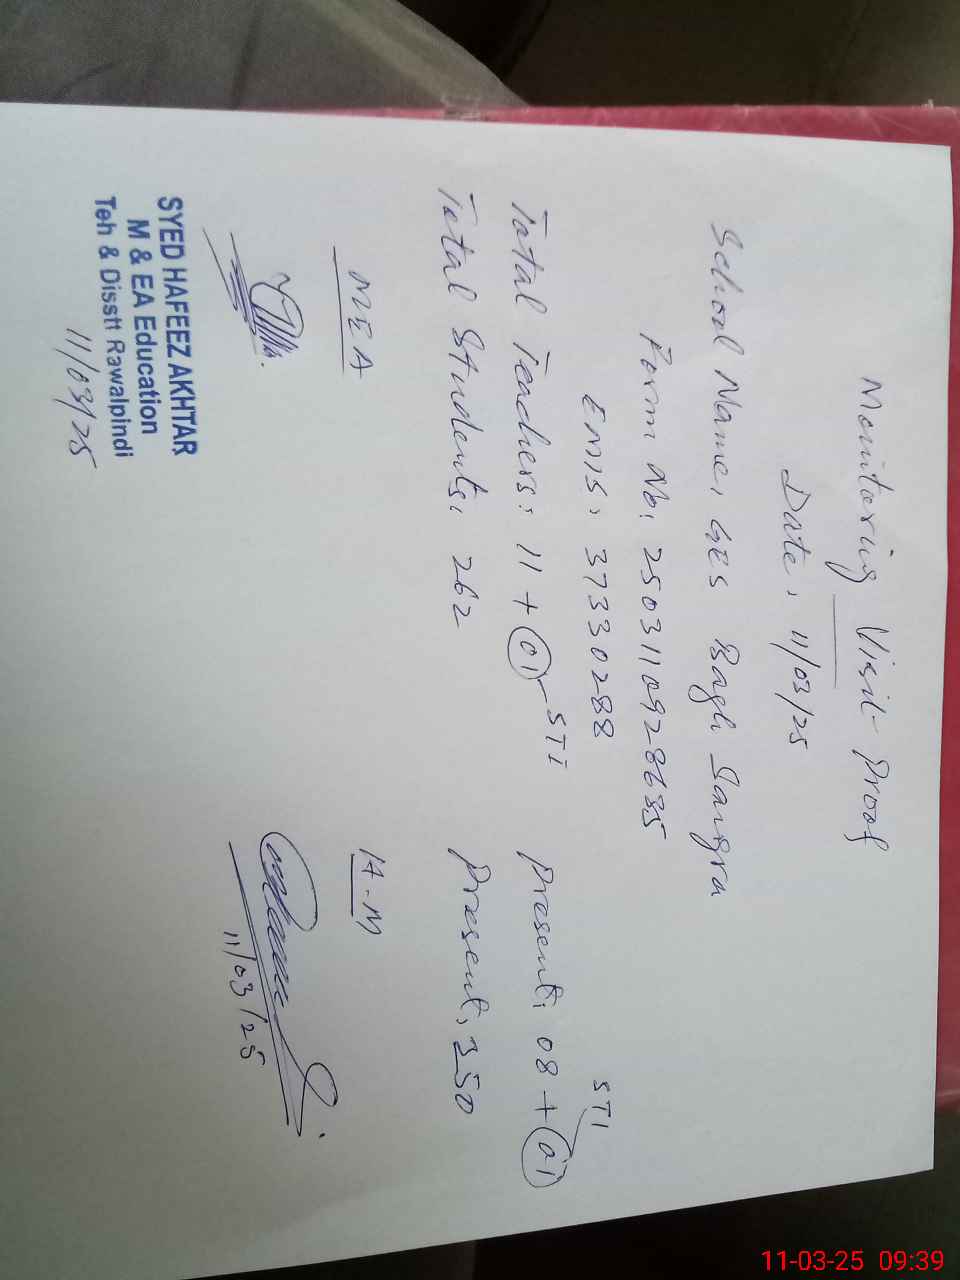 Monitoring Visit Proof
Date: 11/03/25
School Name: GES Bagh Sangra
Form No: 2503110928635
EMIS: 37330288
STI
Total Teachers: 11 + 01 STI Present: 08 + 01
Total Students: 262 Present: 350
MEA H-M
SYED HAFEEZ AKHTAR
M & EA Education
Teh & Disstt Rawalpindi
11/03/25
11/03/25
11-03-25 09:39